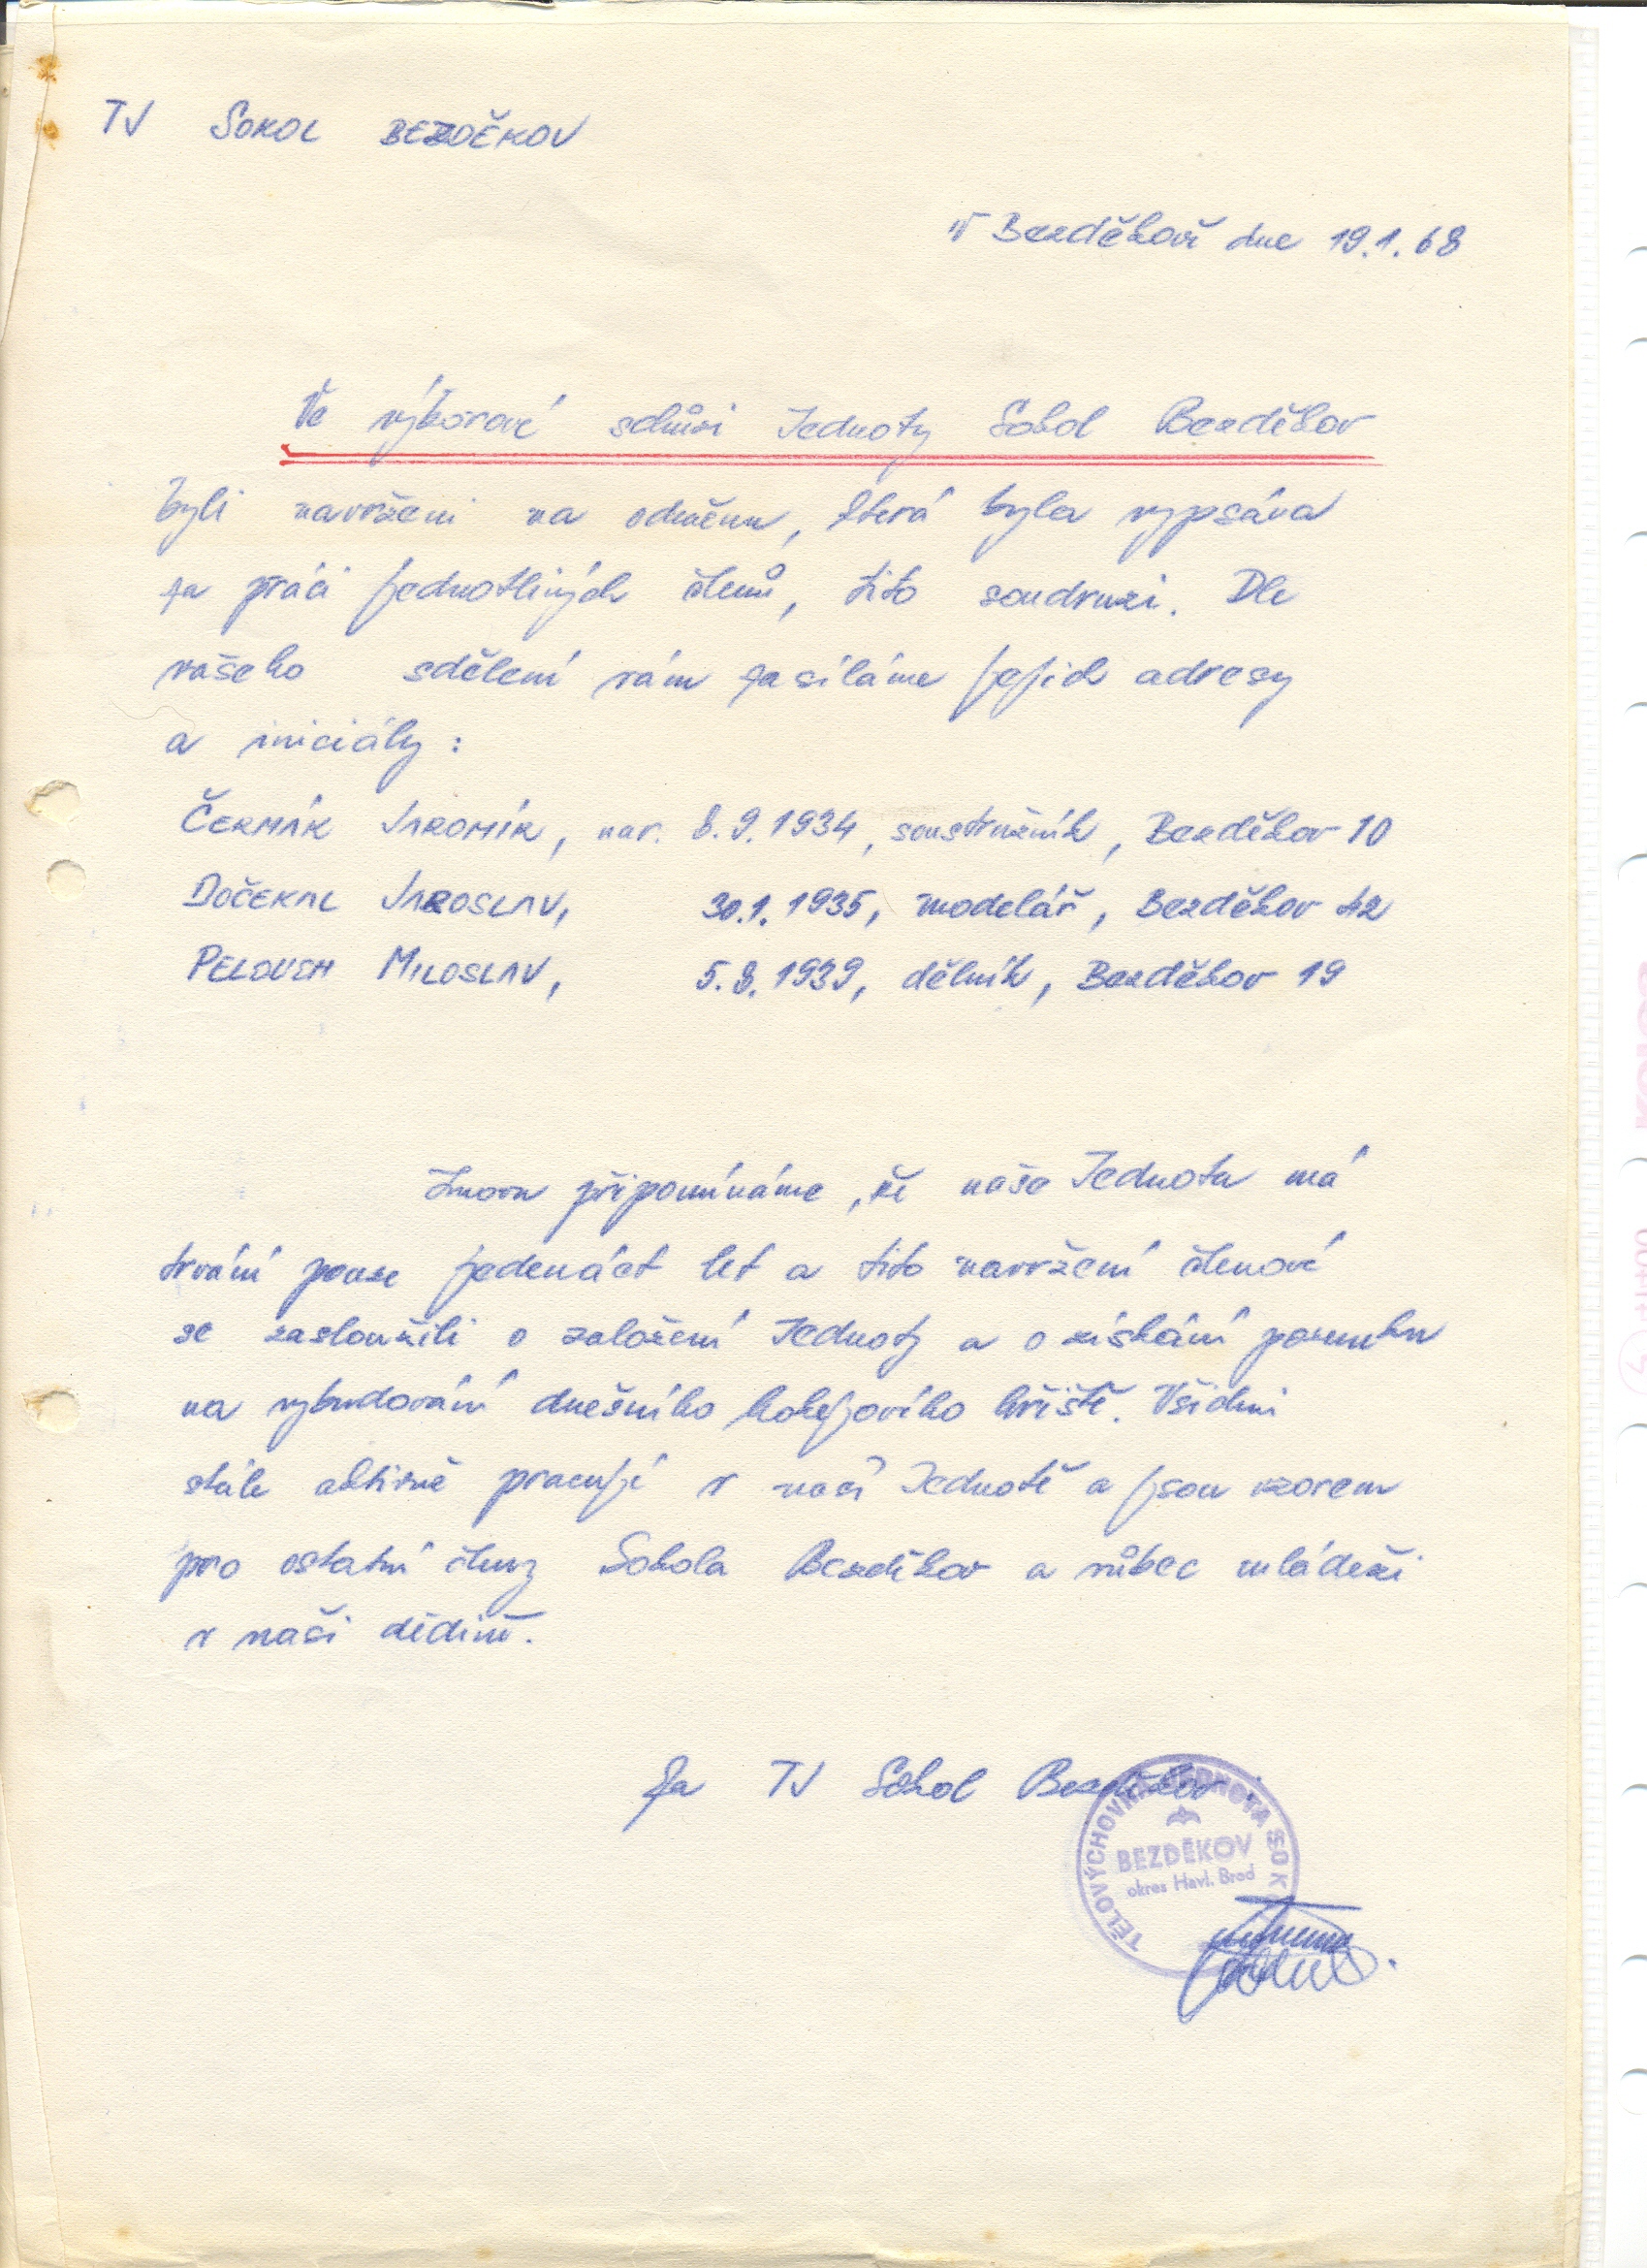 TJ SOKOL BEZDĚKOV
V Bezděkově dne 19.1.68
Ve výborové schůzi Jednoty Sokol Bezděkov
byli navrženi na odměnu, která byla vypsána
za práci jednotlivých členů, tito soudruzi. Dle
vašeho sdělení vám zasíláme jejich adresy
a iniciály:
ČERMÁK JAROMÍR, nar. 8.9.1934, soustružník, Bezděkov 10
DOČEKAL JAROSLAV, 30.1.1935, modelář, Bezděkov 42
MILOSLAV, 5.8.1939, dělník, Bezděkov 19
Znovu připomínáme, že naše Jednota má
trvání pouze jedenáct let a tito navržení členové
se zasloužili o založení Jednoty a o získání pozemku
na vybudování dnešního hokejového hřiště. Všichni
stále aktivně pracují v naší Jednotě a jsou vzorem
pro ostatní členy Sokola Bezděkov a vůbec mládeži
v naši dědině.
Za TJ Sokol Bezděkov:
TĚLOVÝCHOVNÁ JEDNOTA SOKOL
BEZDĚKOV
okres Havl. Brod